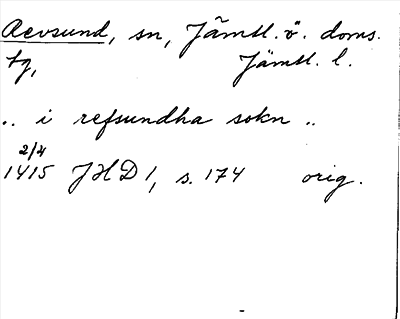 Revsund, sn, Jämtl. ö. doms.
tg, Jämtl. l.
.. i refsundha sokn ..
2/4
1415 JHD 1, s. 174 orig.